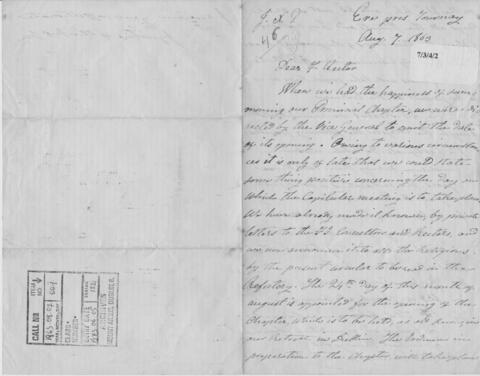 J. X. J
46
Ere près Tournay
Aug. 7. 1863
7/3/4/2
Dear F. Rector
When we had the happiness of summoning our Provincial Chapter, we were directed by the Vice General to omit the date
of its opening. Owing to various circumstances it is only of late that we could state
some thing positive concerning the day on
which the Capitular meeting is to take place.
We have already made it known by private
letters to the FF. Consultors and Rectors, and
we now announce it to all the Religious
by the present circular to be read in the
Refectory. The 24th day of this month of
august is appointed for the opening of the
Chapter, which is to be held, as
our Retreat in The
preparation to the Chapter will take place
CALL NO
ITEM NO
DATE
ARCHIVES